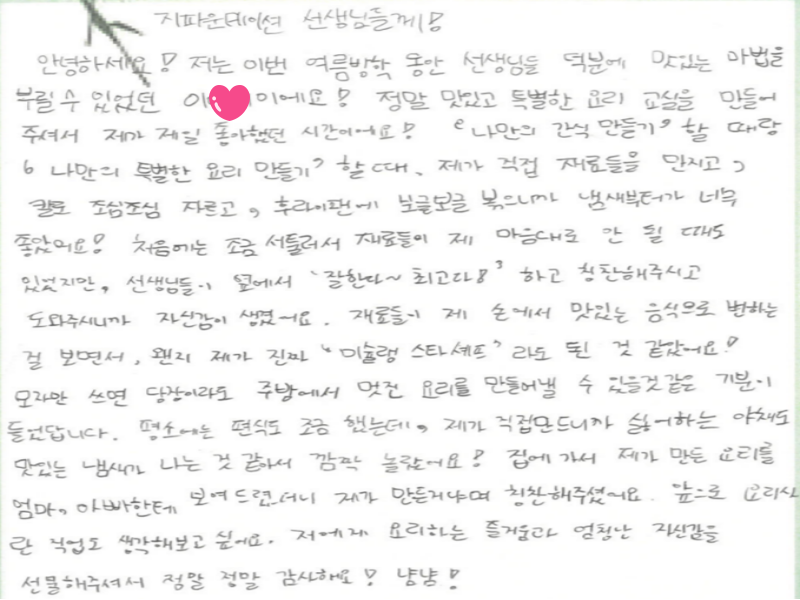 지파운데이션 선생님들께!
안녕하세요! 저는 이번 여름방학 동안 선생님들 덕분에 맛있는 마법을
부릴 수 있었던 이 이에요! 정말 맛있고 특별한 요리 교실을 만들어
주셔서 제가 제일 좋아했던 시간이에요! '나만의 간식 만들기' 할 때랑
'나만의 특별한 요리 만들기' 할 때, 제가 직접 재료들을 만지고,
칼로 조심조심 자르고, 후라이팬에 보글보글 볶으니까 냄새부터가 너무
좋았어요! 처음에는 조금 서툴러서 재료들이 제 마음대로 안 될 때도
있었지만, 선생님들이 옆에서 '잘한다~ 최고다!' 하고 칭찬해주시고
도와주시니까 자신감이 생겼어요. 재료들이 제 손에서 맛있는 음식으로 변하는
걸 보면서, 왠지 제가 진짜 "미슐랭 스타셰프"라도 된 것 같았어요!
모자만 쓰면 당장이라도 주방에서 멋진 요리를 만들어낼 수 있을것같은 기분이
들었답니다. 평소에는 편식도 조금 했는데, 제가 직접만드니까 싫어하는 야채도
맛있는 냄새가 나는 것 같아서 깜짝 놀랐어요! 집에 가서 제가 만든 요리를
엄마, 아빠한테 보여드렸더니 제가 만든거냐며 칭찬해주셨어요. 앞으로 요리사
란 직업도 생각해보고 싶어요. 저에게 요리하는 즐거움과 엄청난 자신감을
선물해주셔서 정말 정말 감사해요! 냠냠!